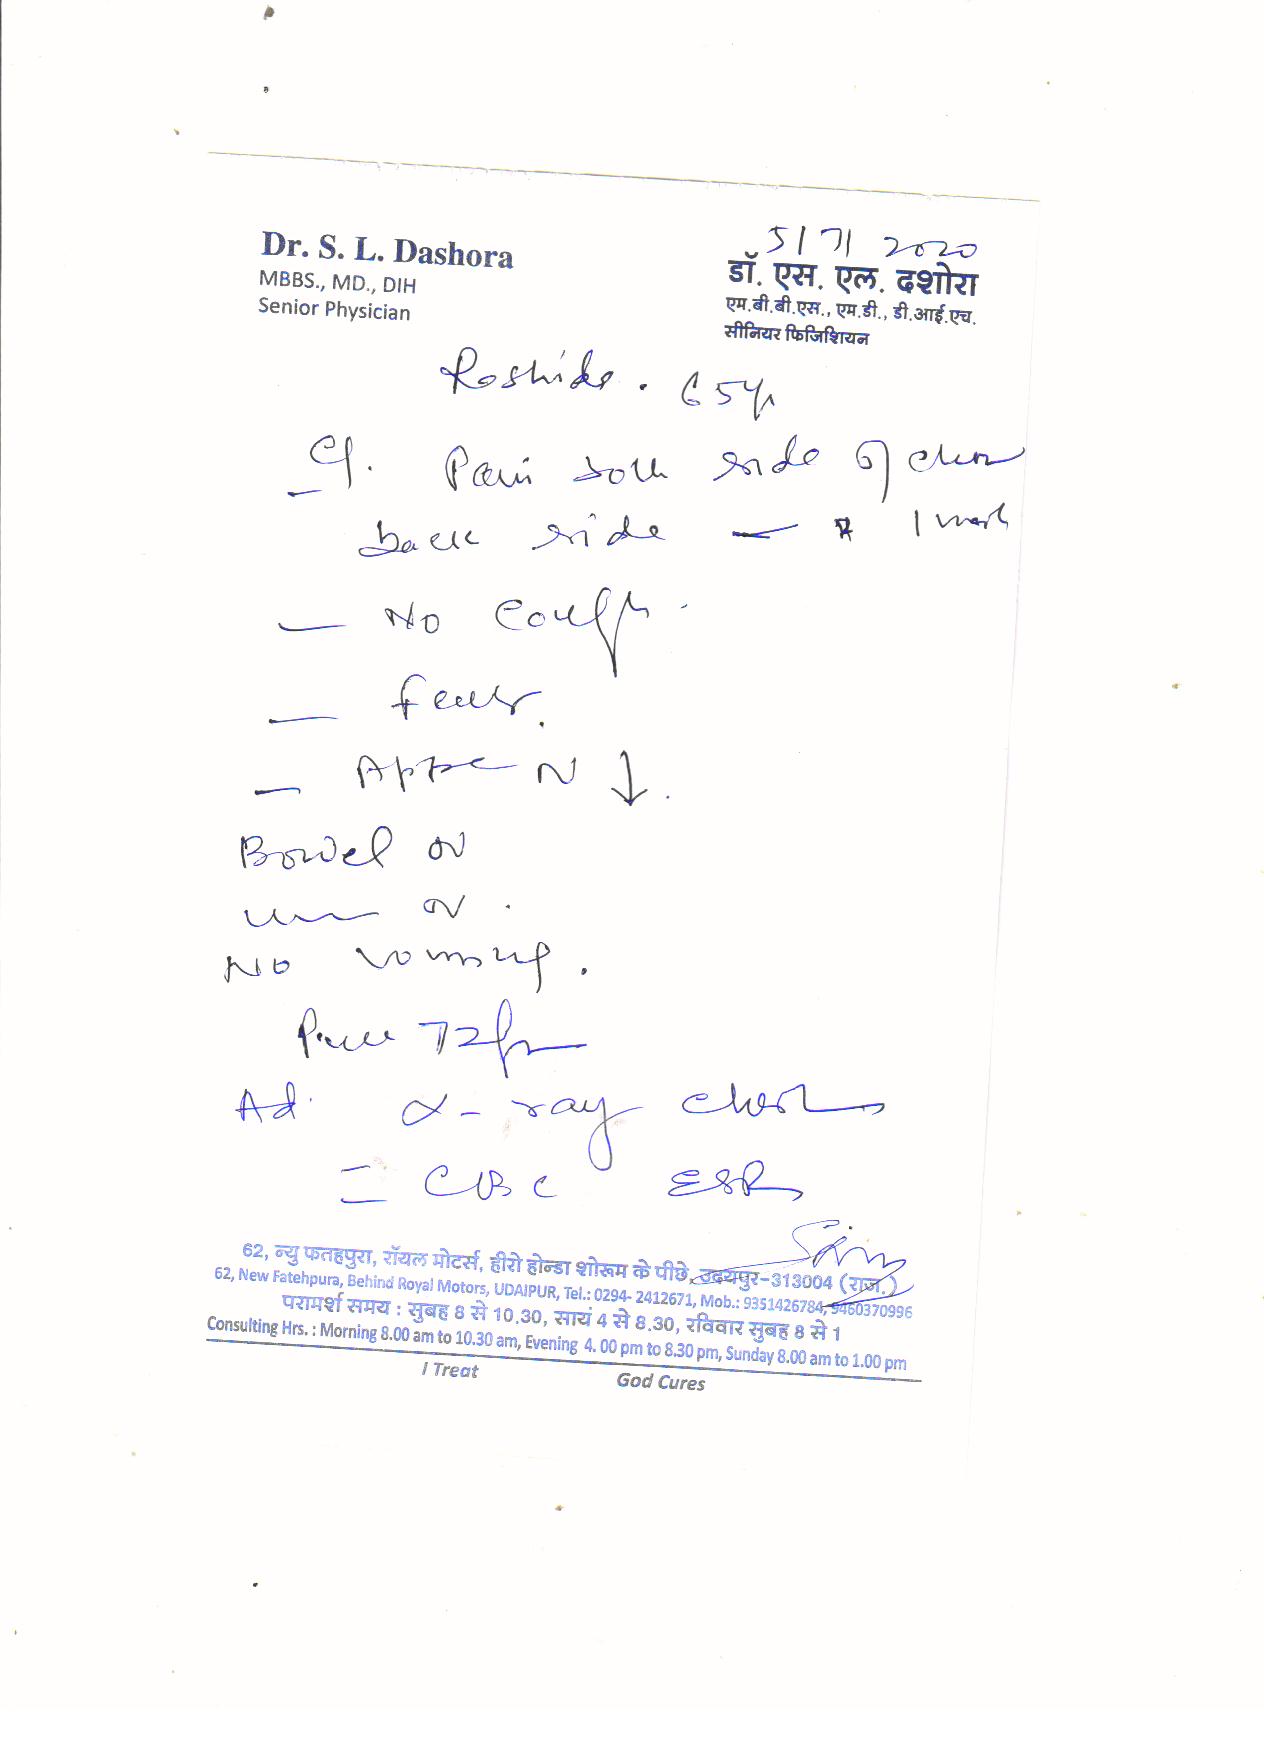 5/7/2020
Dr. S. L. Dashora
MBBS., MD., DIH
Senior Physician
डॉ. एस. एल. दशोरा
एम.बी.बी.एस., एम.डी., डी.आई.एच.
सीनियर फिजिशियन
65yr
Pain both side of chest
back side — 1
— No Cough.
— fever.
— N ↓.
Bowel N
N.
No vomiting.
Pulse 72/m
Ad. X-ray chest
= CBC ESR
62, न्यु फतहपुरा, रॉयल मोटर्स, हीरो होन्डा शोरूम के पीछे, उदयपुर-313004 (राज.)
62, New Fatehpura, Behind Royal Motors, UDAIPUR, Tel.: 0294- 2412671, Mob.: 9351426784, 9460370996
परामर्श समय : सुबह 8 से 10.30, सायं 4 से 8.30, रविवार सुबह 8 से 1
Consulting Hrs. : Morning 8.00 am to 10.30 am, Evening 4. 00 pm to 8.30 pm, Sunday 8.00 am to 1.00 pm
I Treat God Cures